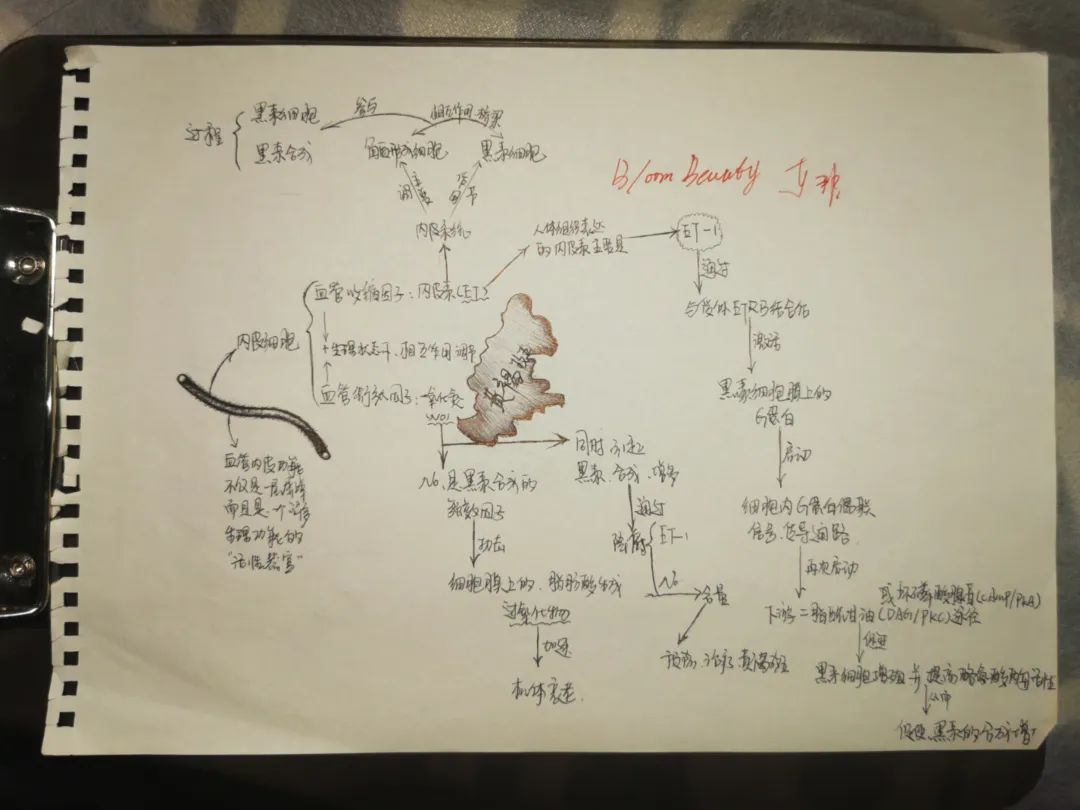 过程
黑素细胞
黑素合成
参与
相互作用 结果
角质形成细胞
黑素细胞
调
主要
调节
内皮系统
Bloom Beauty
人体组织表达
的内皮素主要是
ET-1
通过
与受体ETRB结合后
激活
黑素细胞膜上的
G蛋白
启动
细胞内G蛋白偶联
信号传导通路
再次启动
或环磷酸腺苷(cAMP/PKA)
下游二酯酰甘油(DAG/PKC)途径
促进
黑素细胞增殖并提高酪氨酸酶活性
从而
促使黑素的合成增
血管收缩因子:内皮素(ET)
内皮细胞
生理状态下,相互作用调节
血管舒放因子:一氧化氮
(NO)
黄褐斑
血管内皮功能
不仅是一层屏障
而且是一个诸多
生理功能的
“活性器官”
No.是黑素合成的
强效因子
攻击
细胞膜上的.脂肪酸生成
过氧化物
加速
机体衰老.
同时引起
黑素.合成.增多
通过
ET-1
No
含量
预防.治疗黄褐斑